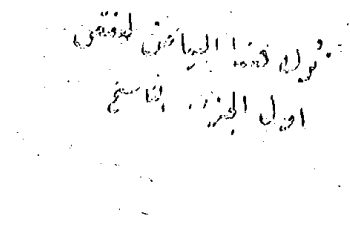 ترك هذا البياض لنقص
اول الجزء التاسع